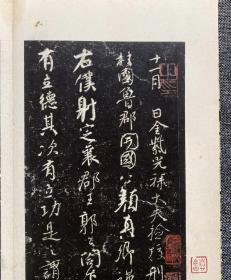 十一月 日金紫光祿大夫檢校刑
柱國魯郡開國公顏真卿謹
右僕射定襄郡王郭公閤下
有立德其次有立功是之謂